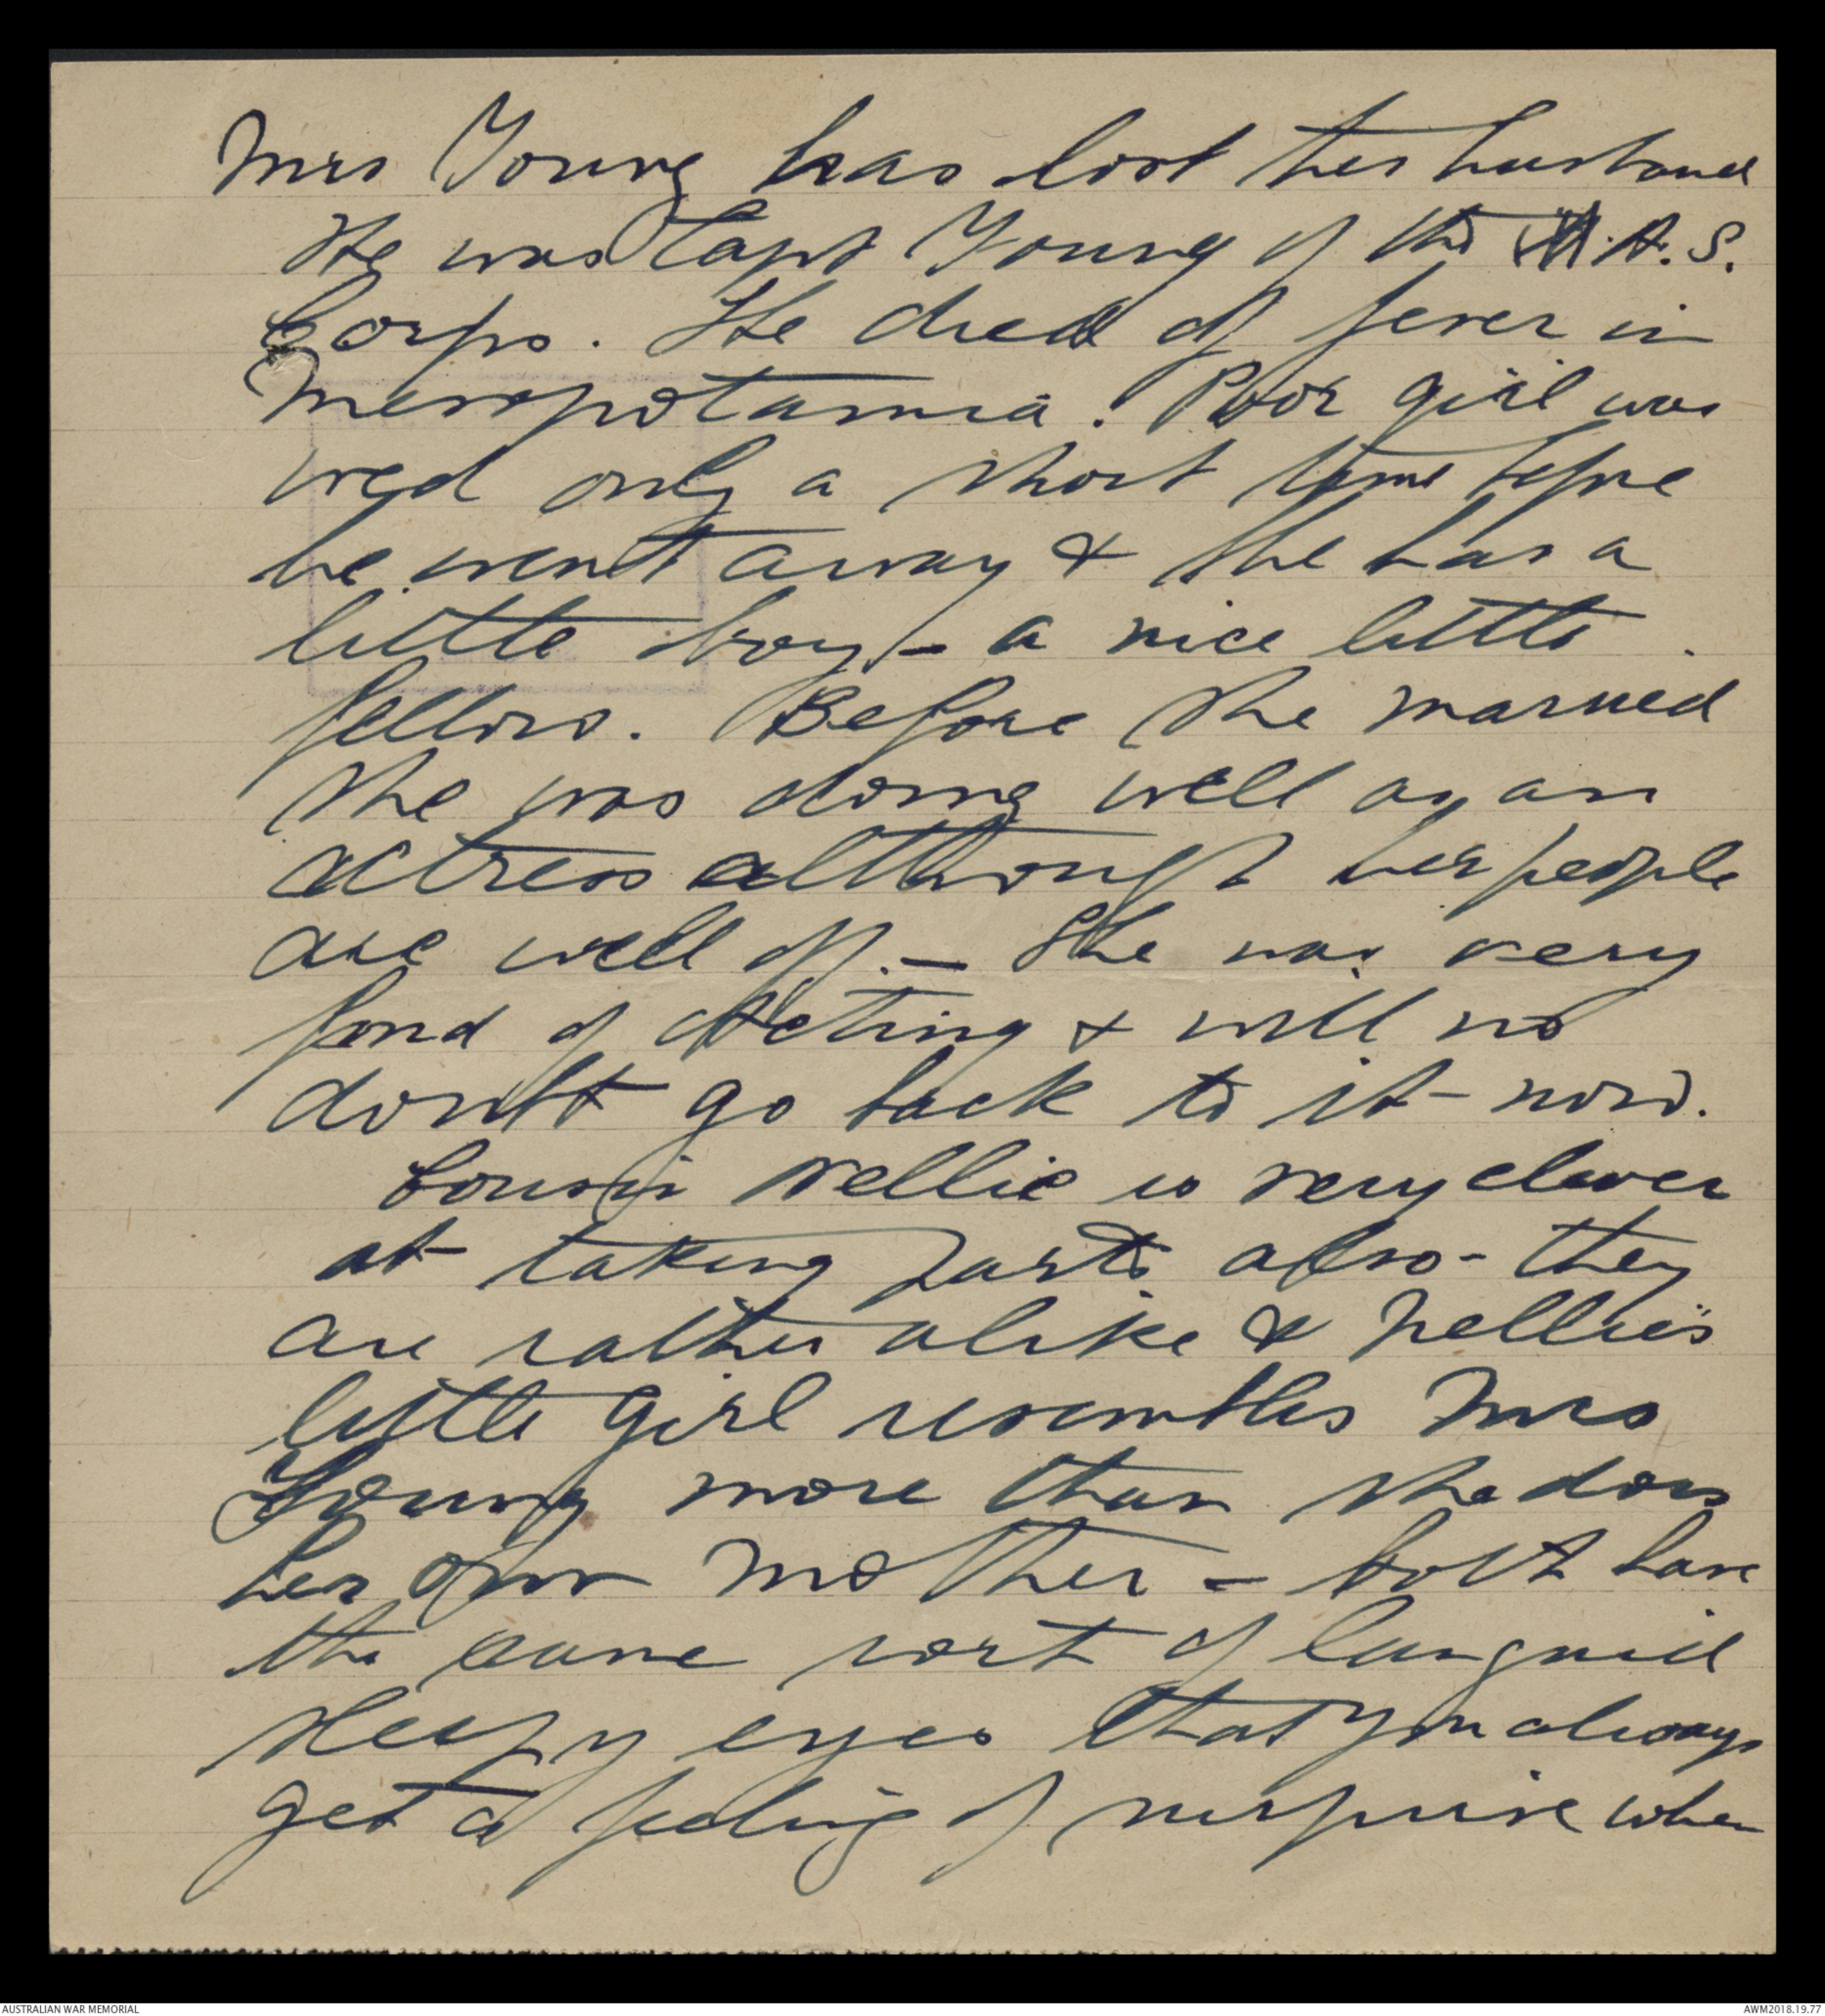 Mrs Young has lost her husband
He was Capt Young of the A.S.
Corps. He died of fever in
Mesopotamia. Poor girl was
wed only a short time before
he went away & she has a
little boy - a nice little
fellow. Before she married
she was doing well as an
actress although her people
are well off. - She was very
fond of Acting & will no
doubt go back to it - now.
Cousin Nellie is very clever
at taking parts also - they
are rather alike & Nellie's
little girl resembles Mrs
Young more than she does
her own mother - both have
the same sort of languid
sleepy eyes that you always
get a feeling of surprise when
AUSTRALIAN WAR MEMORIAL
AWM2018.19.77